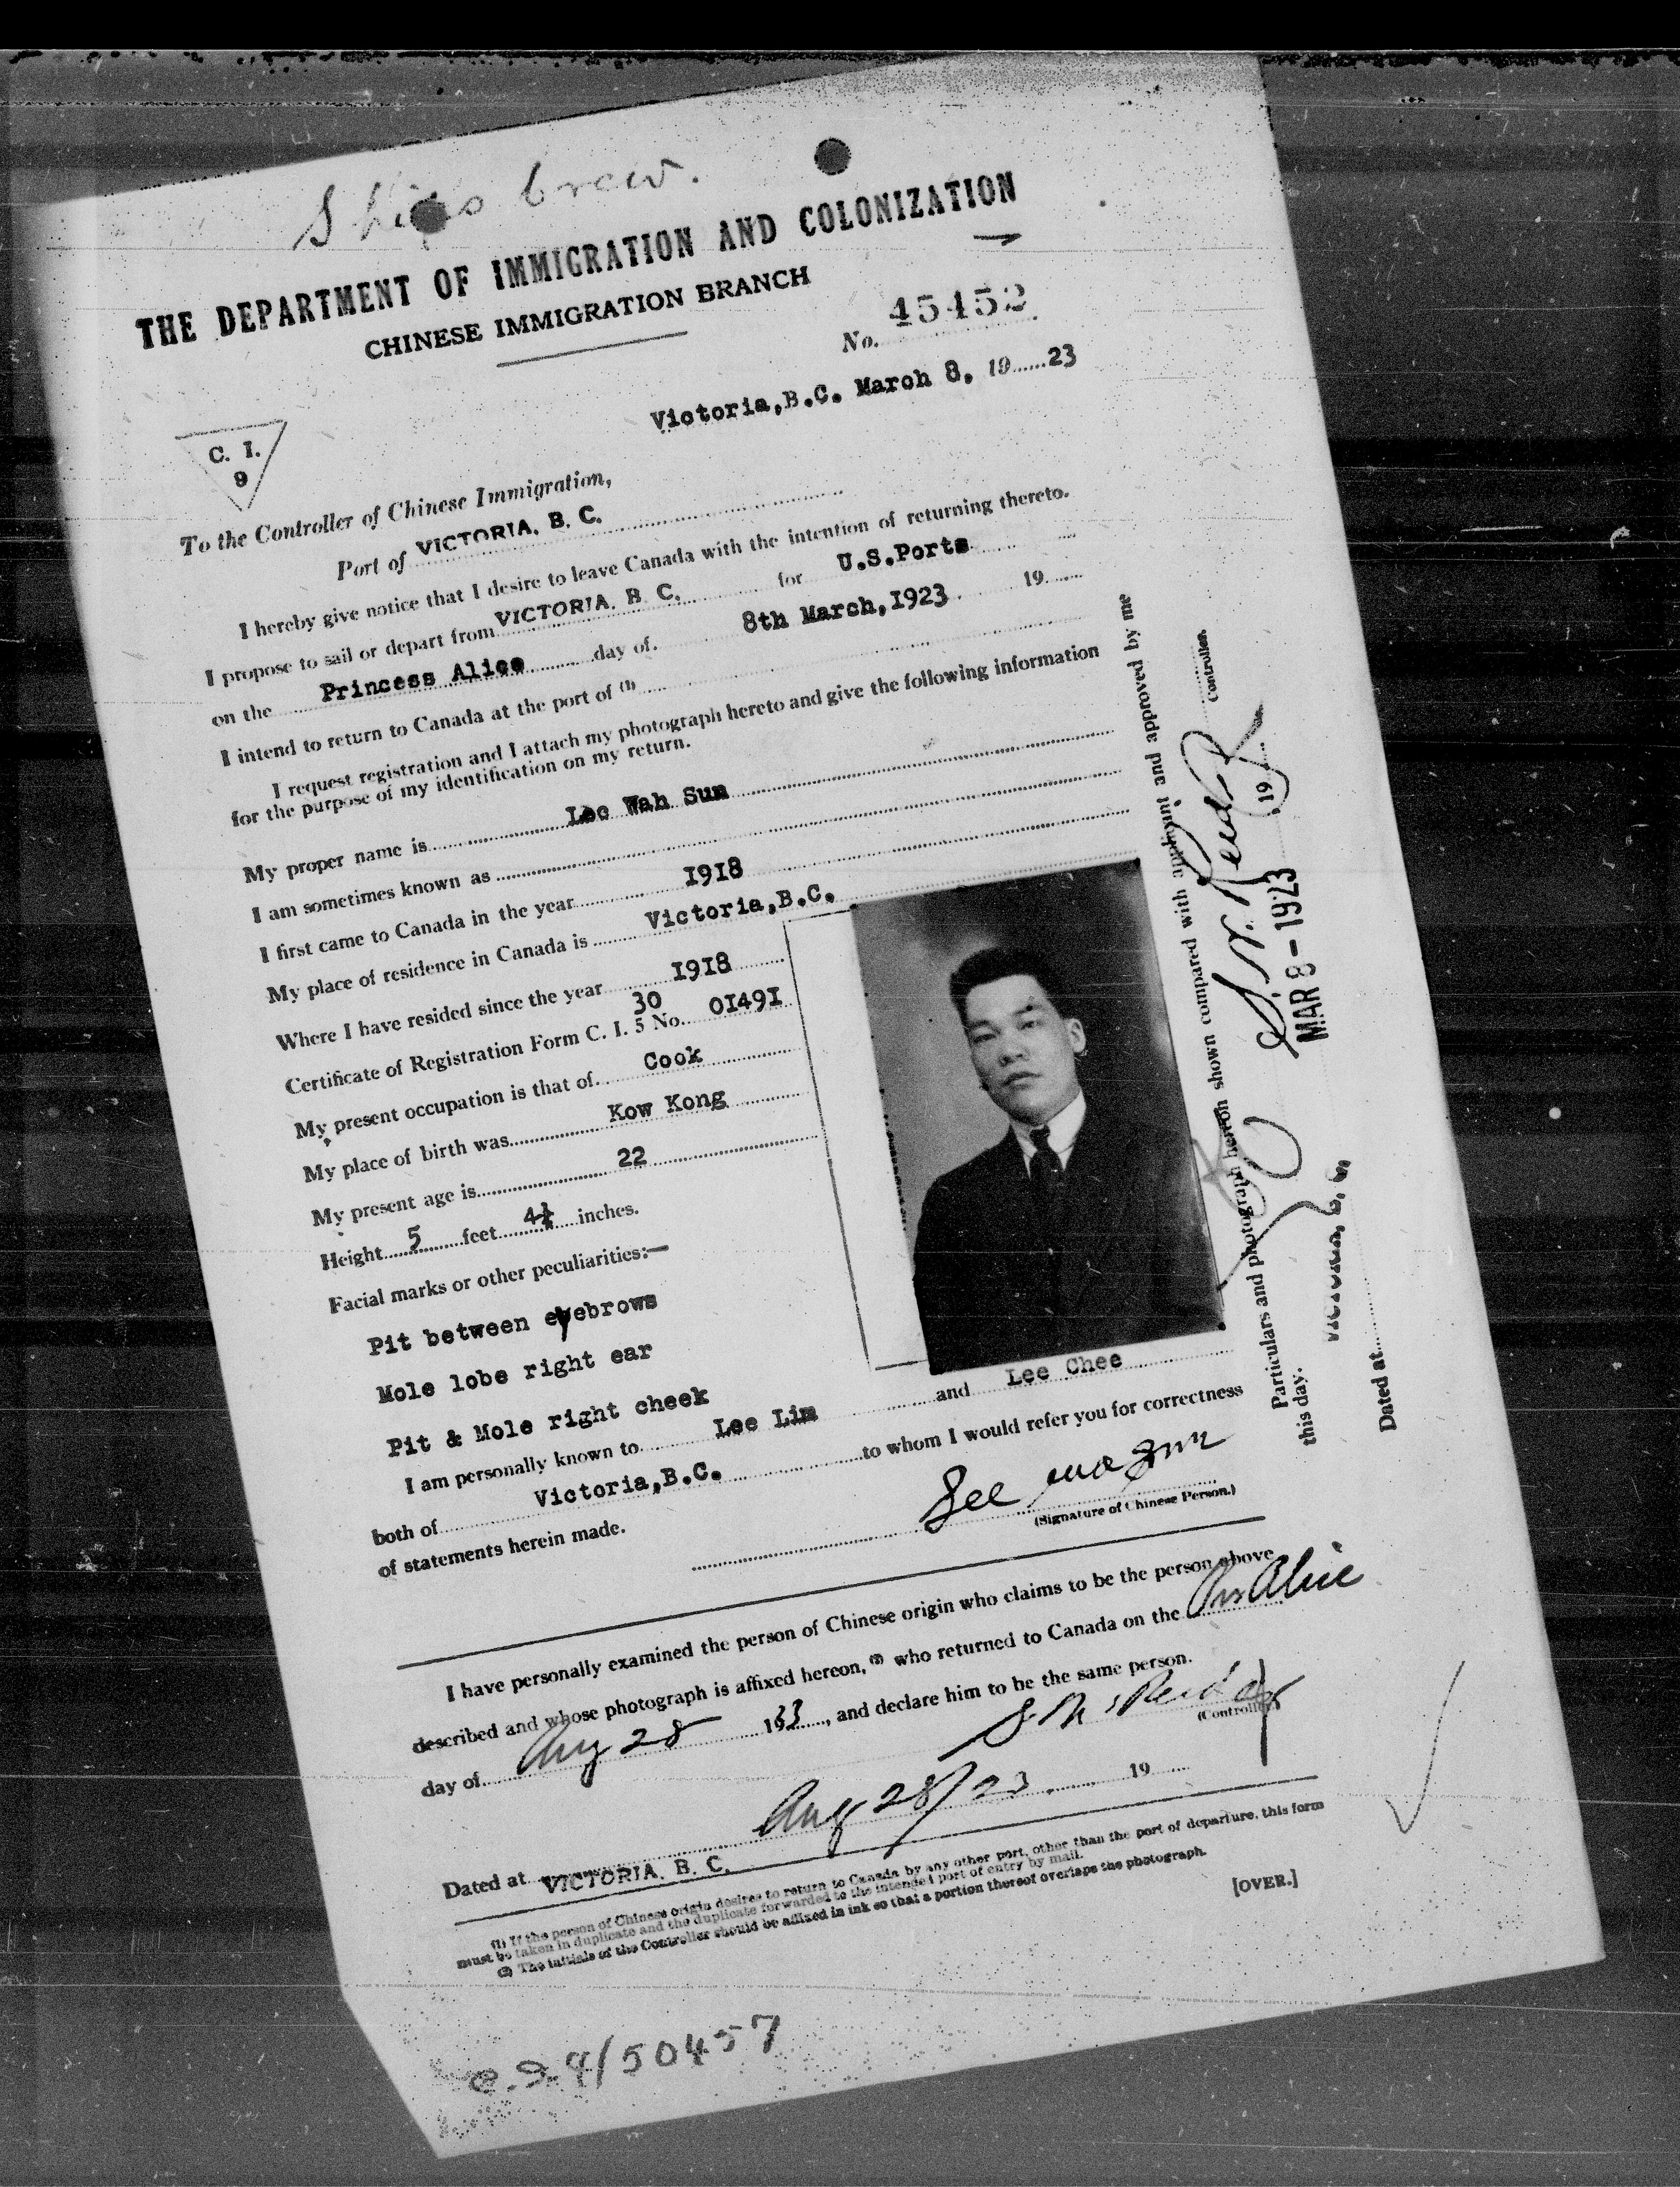 Ships Crew.
THE DEPARTMENT OF IMMIGRATION AND COLONIZATION
CHINESE IMMIGRATION BRANCH
No. 45452
Victoria,B.C. March 8, 19 23
C. I.
9
To the Controller of Chinese Immigration,
Port of VICTORIA, B. C.
I hereby give notice that I desire to leave Canada with the intention of returning thereto.
I propose to sail or depart from VICTORIA. B. C. for U.S.Ports
on the Princess Alice day of 8th March,1923 19
I intend to return to Canada at the port of (1)
I request registration and I attach my photograph hereto and give the following information
for the purpose of my identification on my return.
My proper name is Lee Wah Sun
I am sometimes known as
I first came to Canada in the year 1918
My place of residence in Canada is Victoria,B.C.
Where I have resided since the year 1918
Certificate of Registration Form C. I. 5 No. 30 01491
My present occupation is that of Cook
My place of birth was Kow Kong
My present age is 22
Height 5 feet 4½ inches.
Facial marks or other peculiarities:—
Pit between eyebrows
Mole lobe right ear
Pit & Mole right cheek
I am personally known to Lee Lim and Lee Chee
both of Victoria,B.C. to whom I would refer you for correctness
of statements herein made.
Lee
(Signature of Chinese Person.)
Particulars and photograph hereon shown compared with applicant and approved by me
this day.
Controller.
Dated at Victoria, B. C. MAR 8 - 1923 19
I have personally examined the person of Chinese origin who claims to be the person above
described and whose photograph is affixed hereon, (2) who returned to Canada on the Prs Alice
day of Aug 28 1923, and declare him to be the same person.
(Controller)
Aug 28/23 19
Dated at VICTORIA. B. C.
(1) If the person of Chinese origin desires to return to Canada by any other port, other than the port of departure, this form
must be taken in duplicate and the duplicate forwarded to the intended port of entry by mail.
(2) The initials of the Controller should be affixed in ink so that a portion thereof overlaps the photograph.
[OVER.]
50457